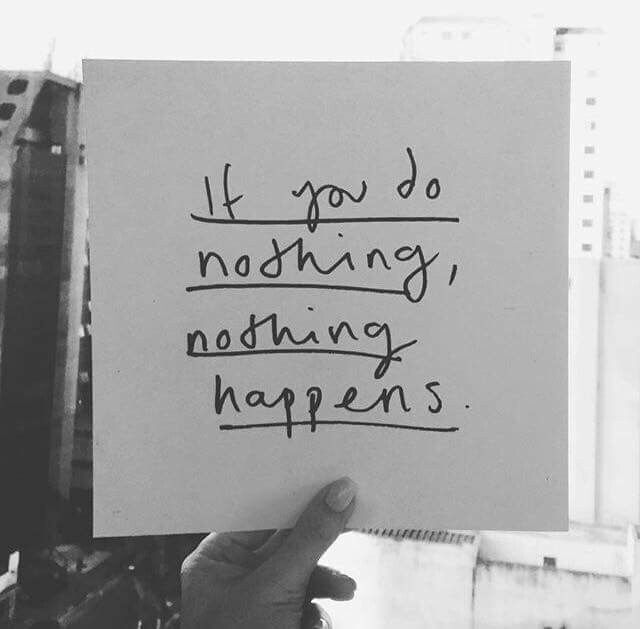 If you do
nothing,
nothing
happens.